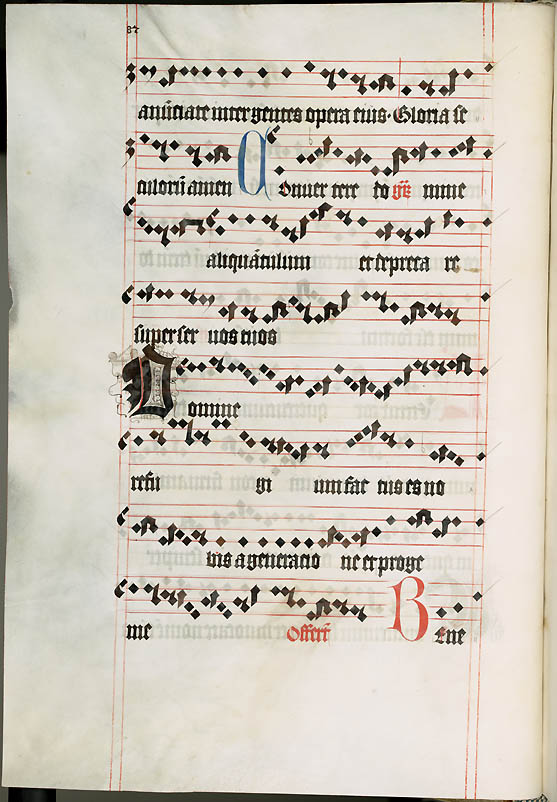 87
anūciate inter gentes opera eius. Gloria se
culorū amen Conuer tere do gr̄ mine
aliquātulum et depreca re
super ser uos tuos
Domine
refu gi um fac tus es no
bis a generatio ne et proge
nie Offert̄ Bene